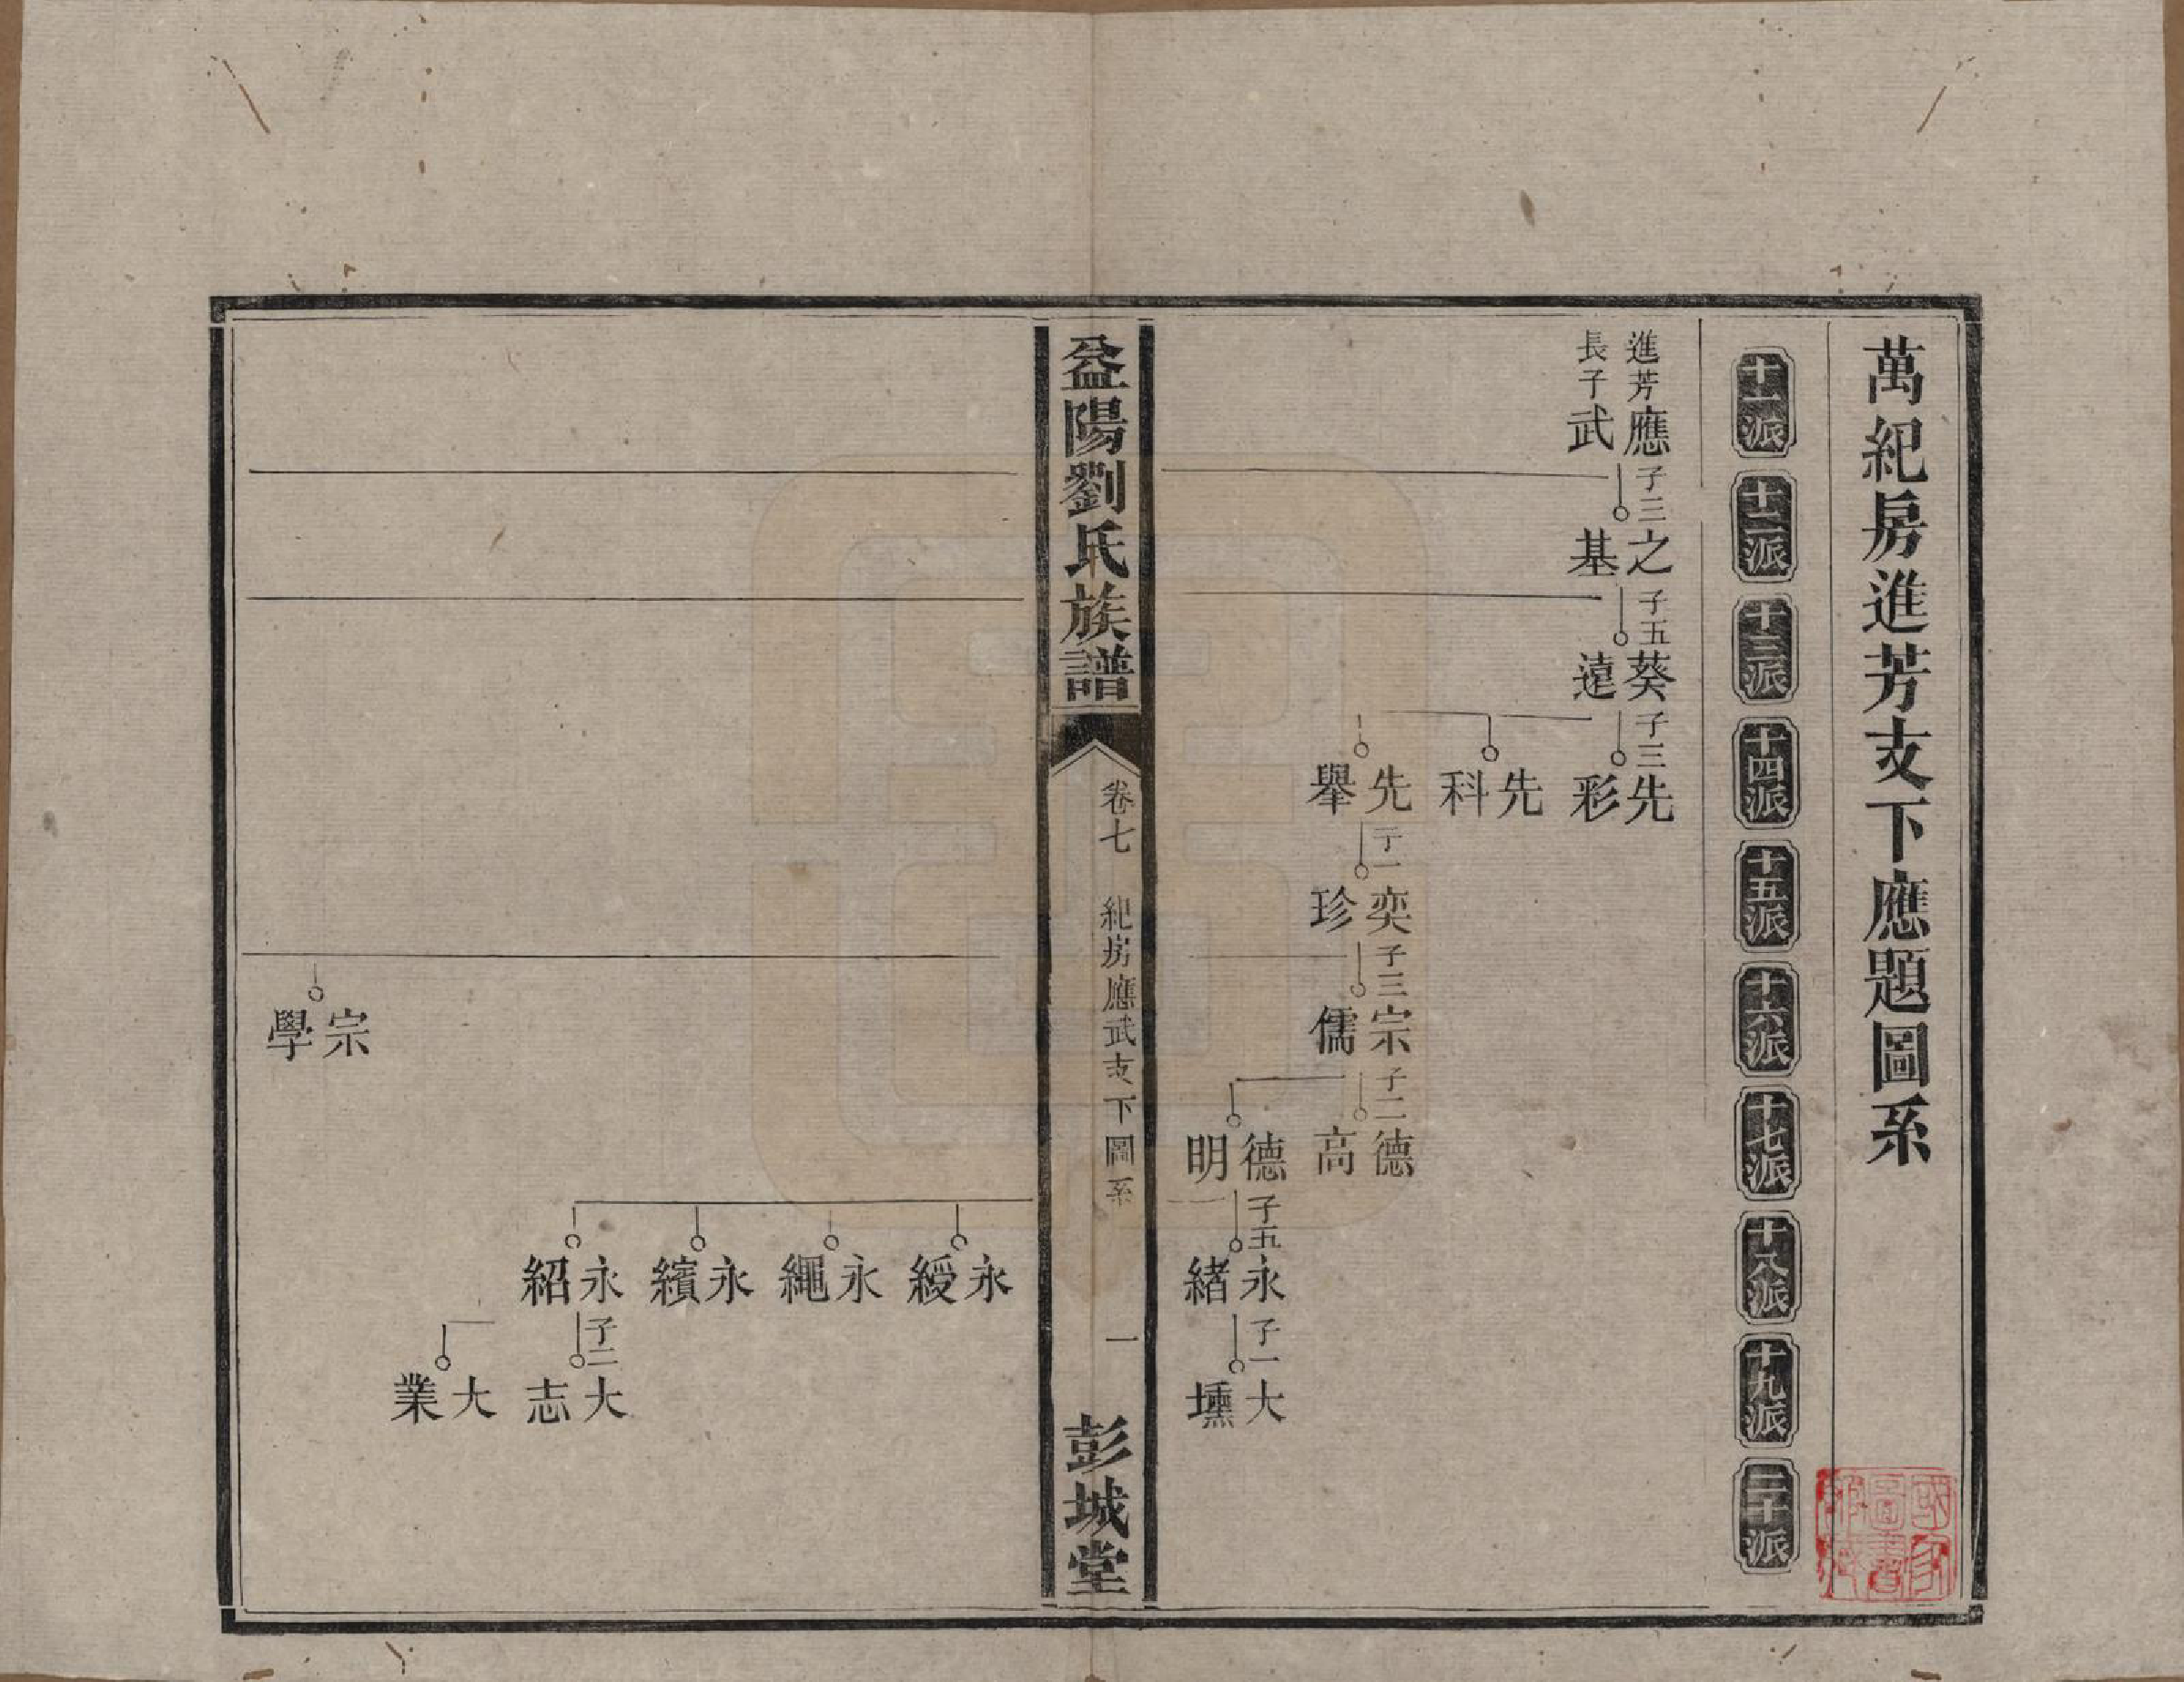 萬紀房進芳支下應題圖系
十一派
十二派
十三派
十四派
十五派
十六派
十七派
十八派
十九派
二十派
進芳長子
應武
子三
之基
子五
葵遠
子三
先彩
先科
先舉
子一
奕珍
子三
宗儒
子二
德高
德明
子五
永緒
子一
大壎
益陽劉氏族譜
卷七
紀房應武支下圖系
一
彭城堂
永綬
永繩
永繽
永紹
子二
大志
大業
宗學
國家圖書館藏